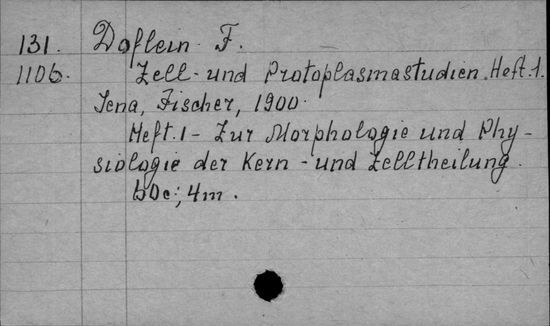 131. Doflein F.
1106. Zell- und Protoplasmastudien. Heft. 1.
Jena, Fischer, 1900.
Heft. 1 - Zur Morphologie und Phy-
siologie der Kern - und Zelltheilung.
4m.